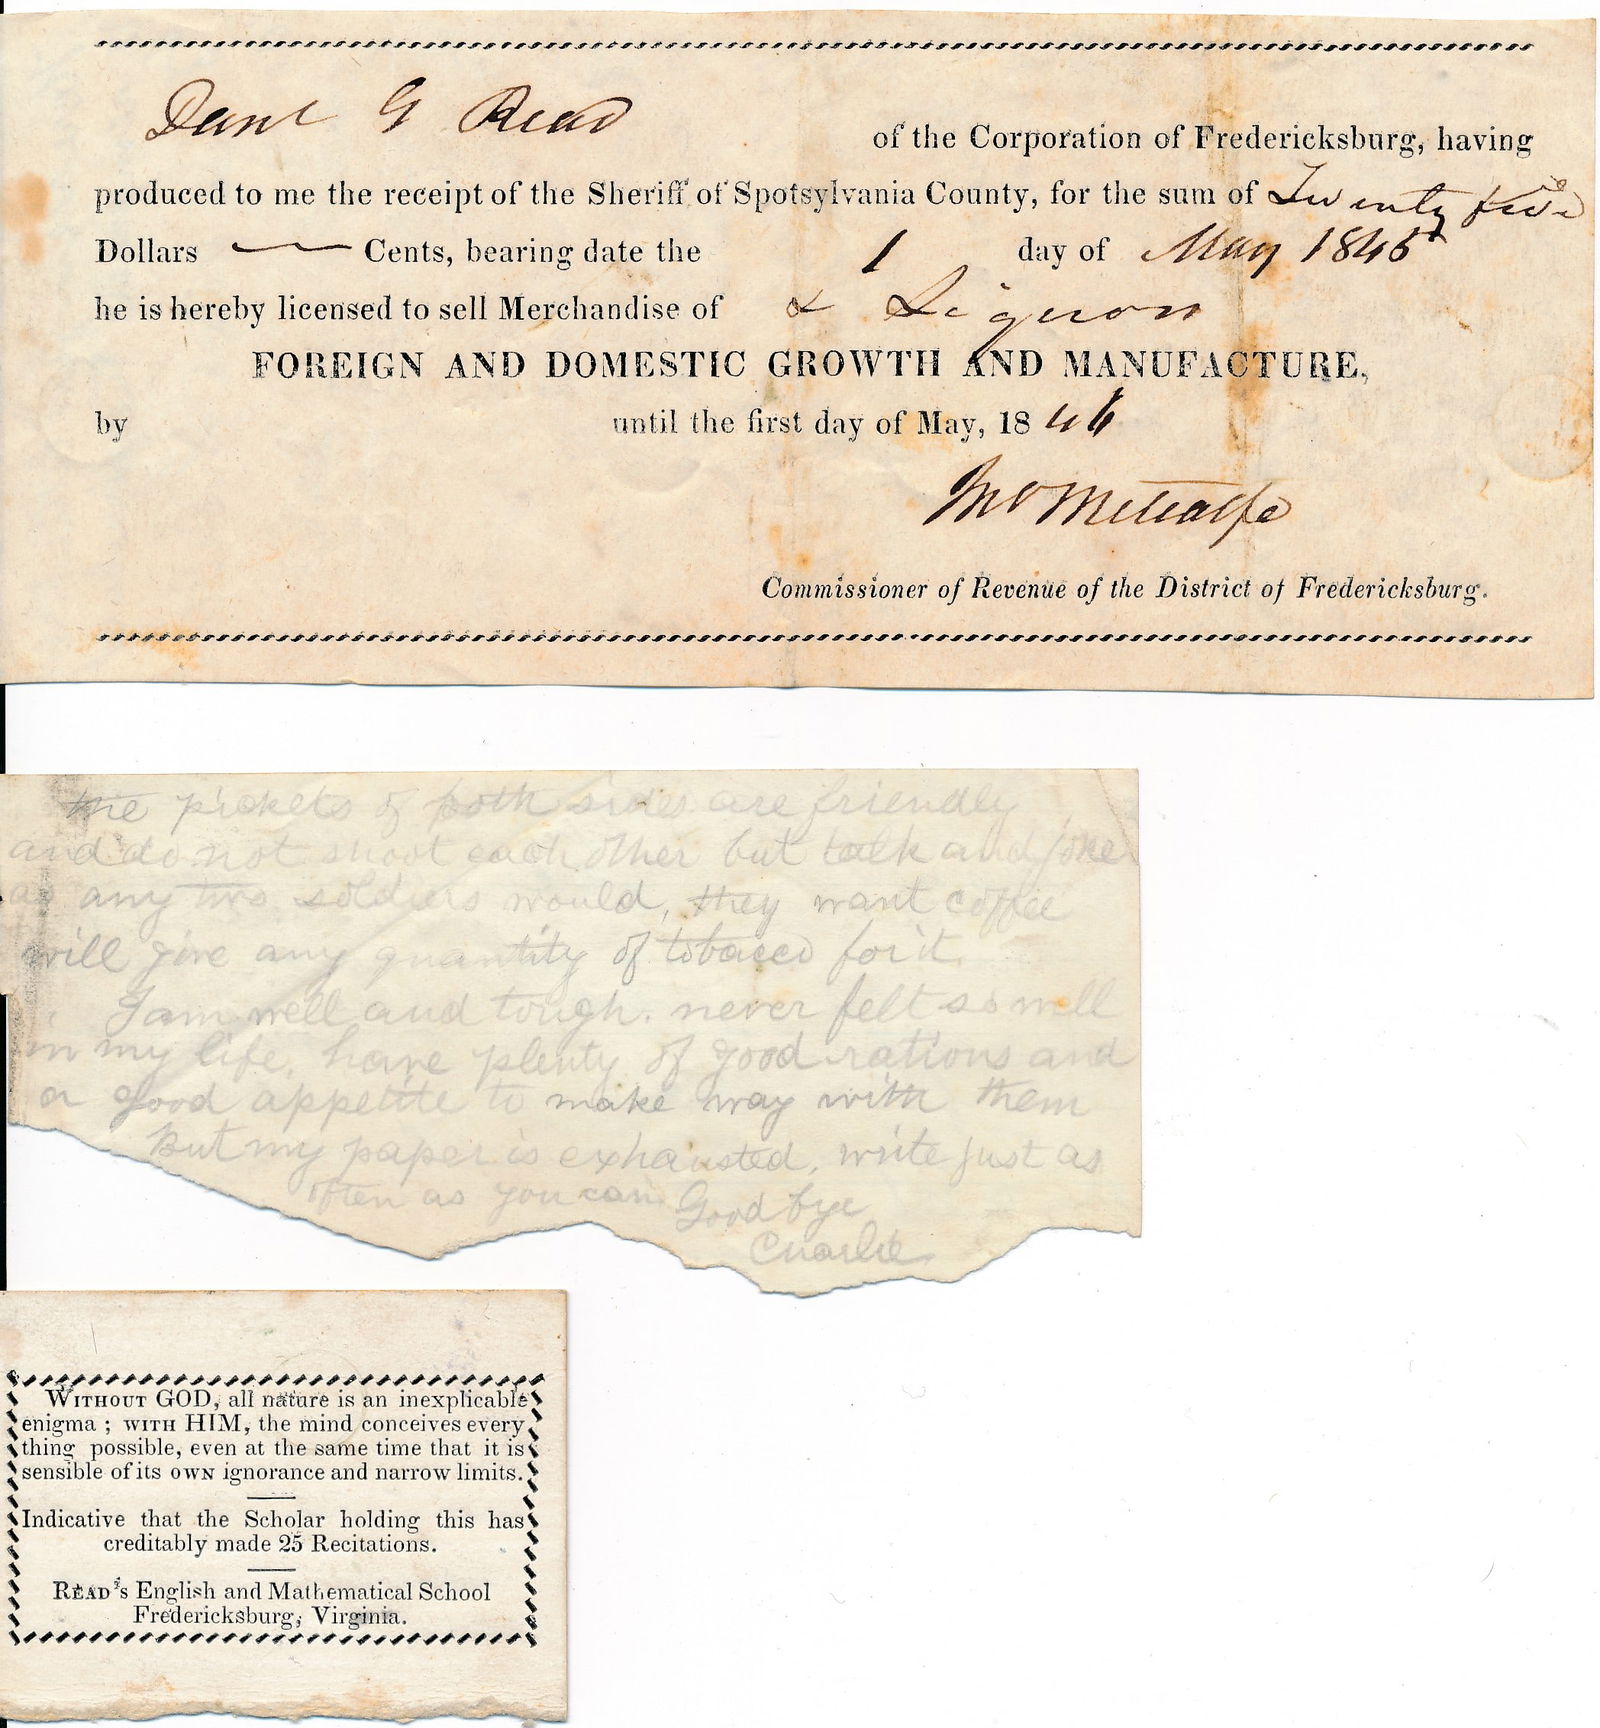 Danl G Read
of the Corporation of Fredericksburg, having
produced to me the receipt of the Sheriff of Spotsylvania County, for the sum of Twenty five
Dollars — Cents, bearing date the 1 day of May 1845
he is hereby licensed to sell Merchandise of & Liquors
FOREIGN AND DOMESTIC GROWTH AND MANUFACTURE,
by until the first day of May, 18 46
Metcalfe
Commissioner of Revenue of the District of Fredericksburg.
the pickets of both sides are friendly
and do not shoot each other but talk and joke
as any two soldiers would, they want coffee
will give any quantity of tobacco for it.
I am well and tough. never felt so well
in my life, have plenty of good rations and
a good appetite to make way with them
But my paper is exhausted, write just as
often as you can Good bye
Charlie
WITHOUT GOD, all nature is an inexplicable
enigma ; WITH HIM, the mind conceives every
thing possible, even at the same time that it is
sensible of its OWN ignorance and narrow limits.
Indicative that the Scholar holding this has
creditably made 25 Recitations.
READ'S English and Mathematical School
Fredericksburg, Virginia.